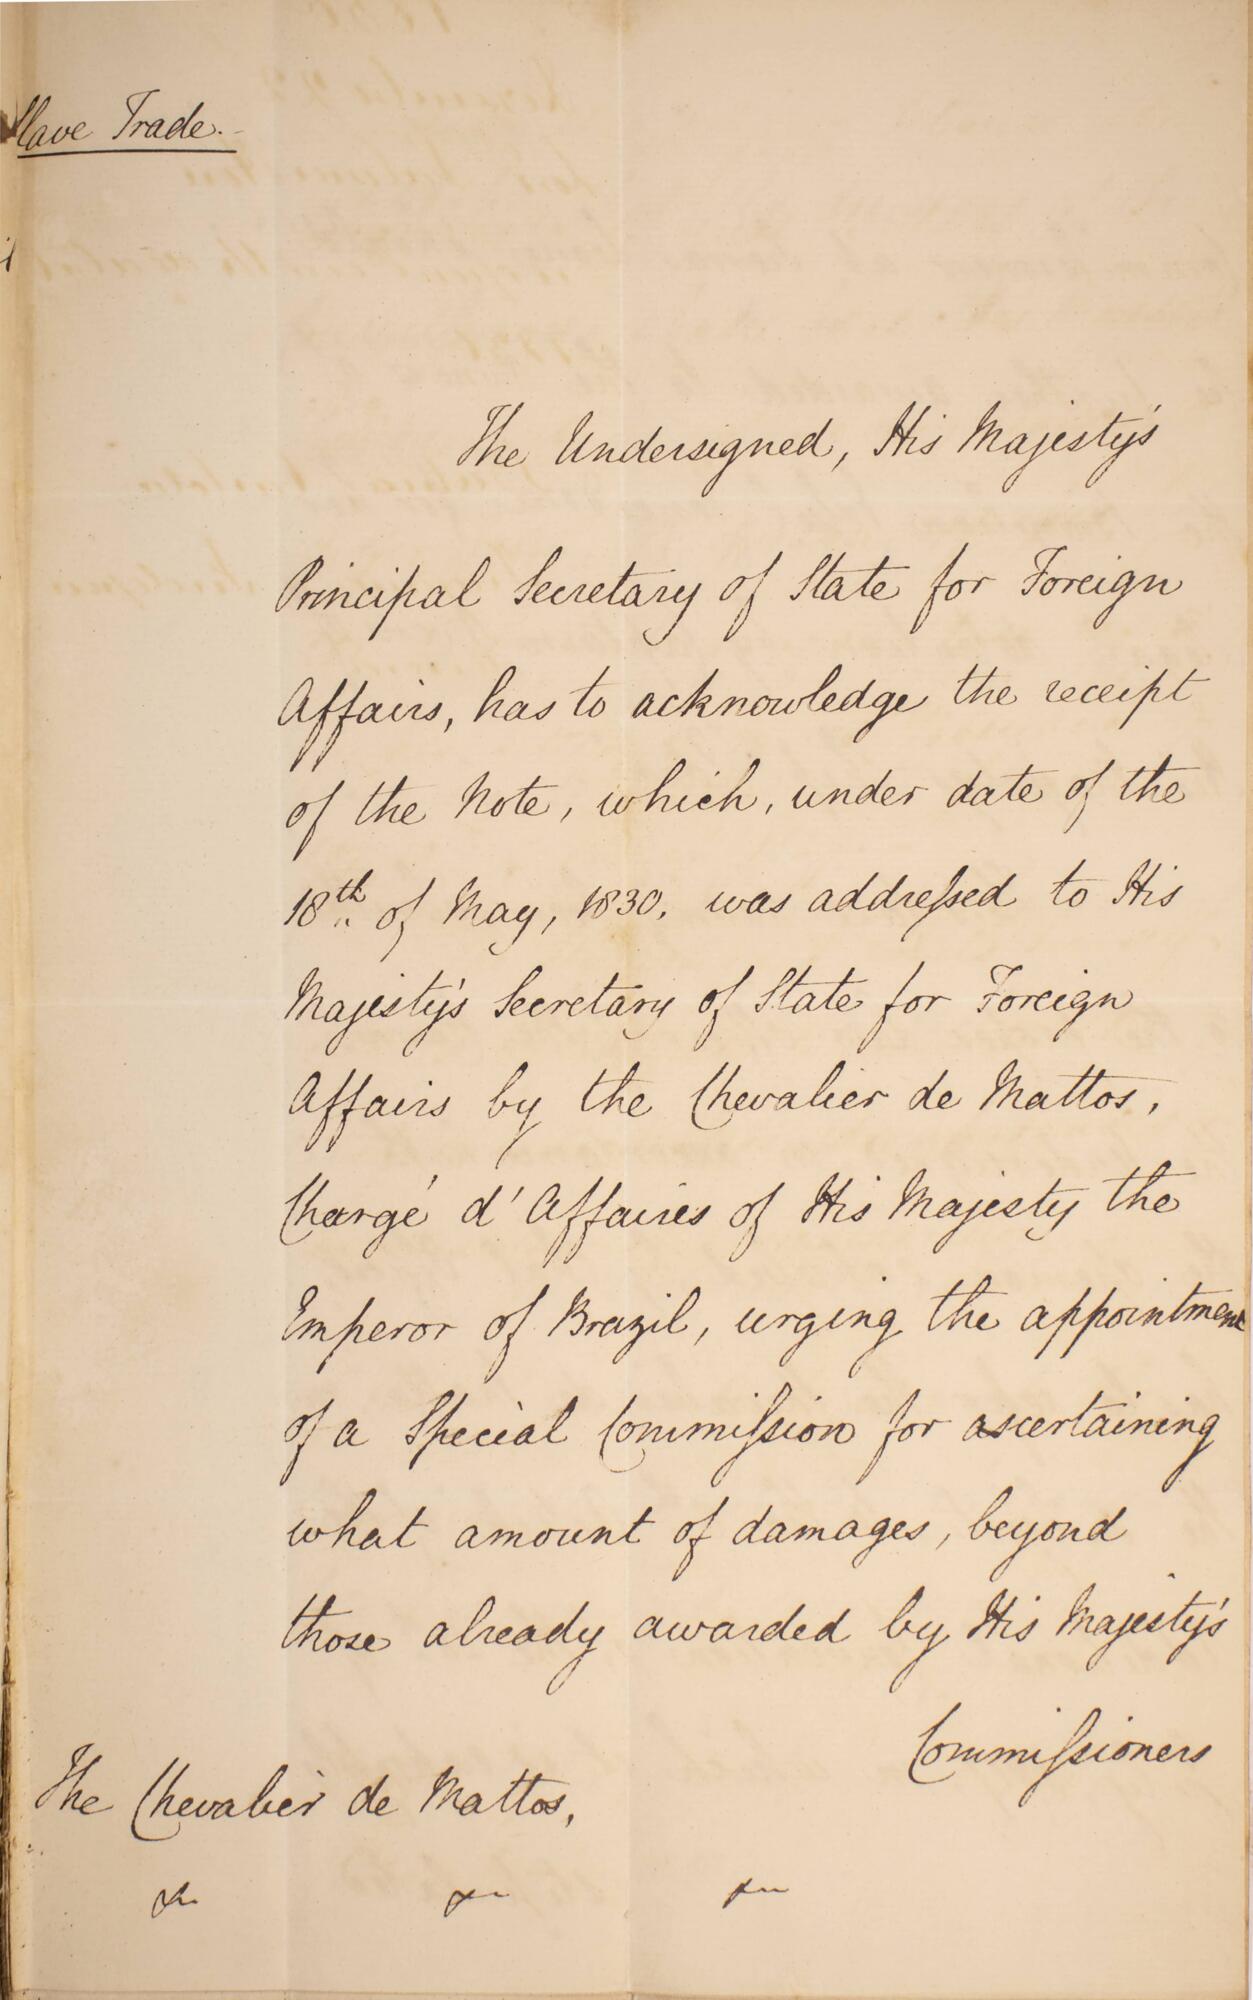 Slave Trade.
The Undersigned, His Majesty's
Principal Secretary of State for Foreign
Affairs, has to acknowledge the receipt
of the Note, which, under date of the
18th of May, 1830, was addressed to His
Majesty's Secretary of State for Foreign
Affairs by the Chevalier de Mattos,
Chargé d'Affaires of His Majesty the
Emperor of Brazil, urging the appointment
of a Special Commission for ascertaining
what amount of damages, beyond
those already awarded by His Majesty's
Commissioners
The Chevalier de Mattos,